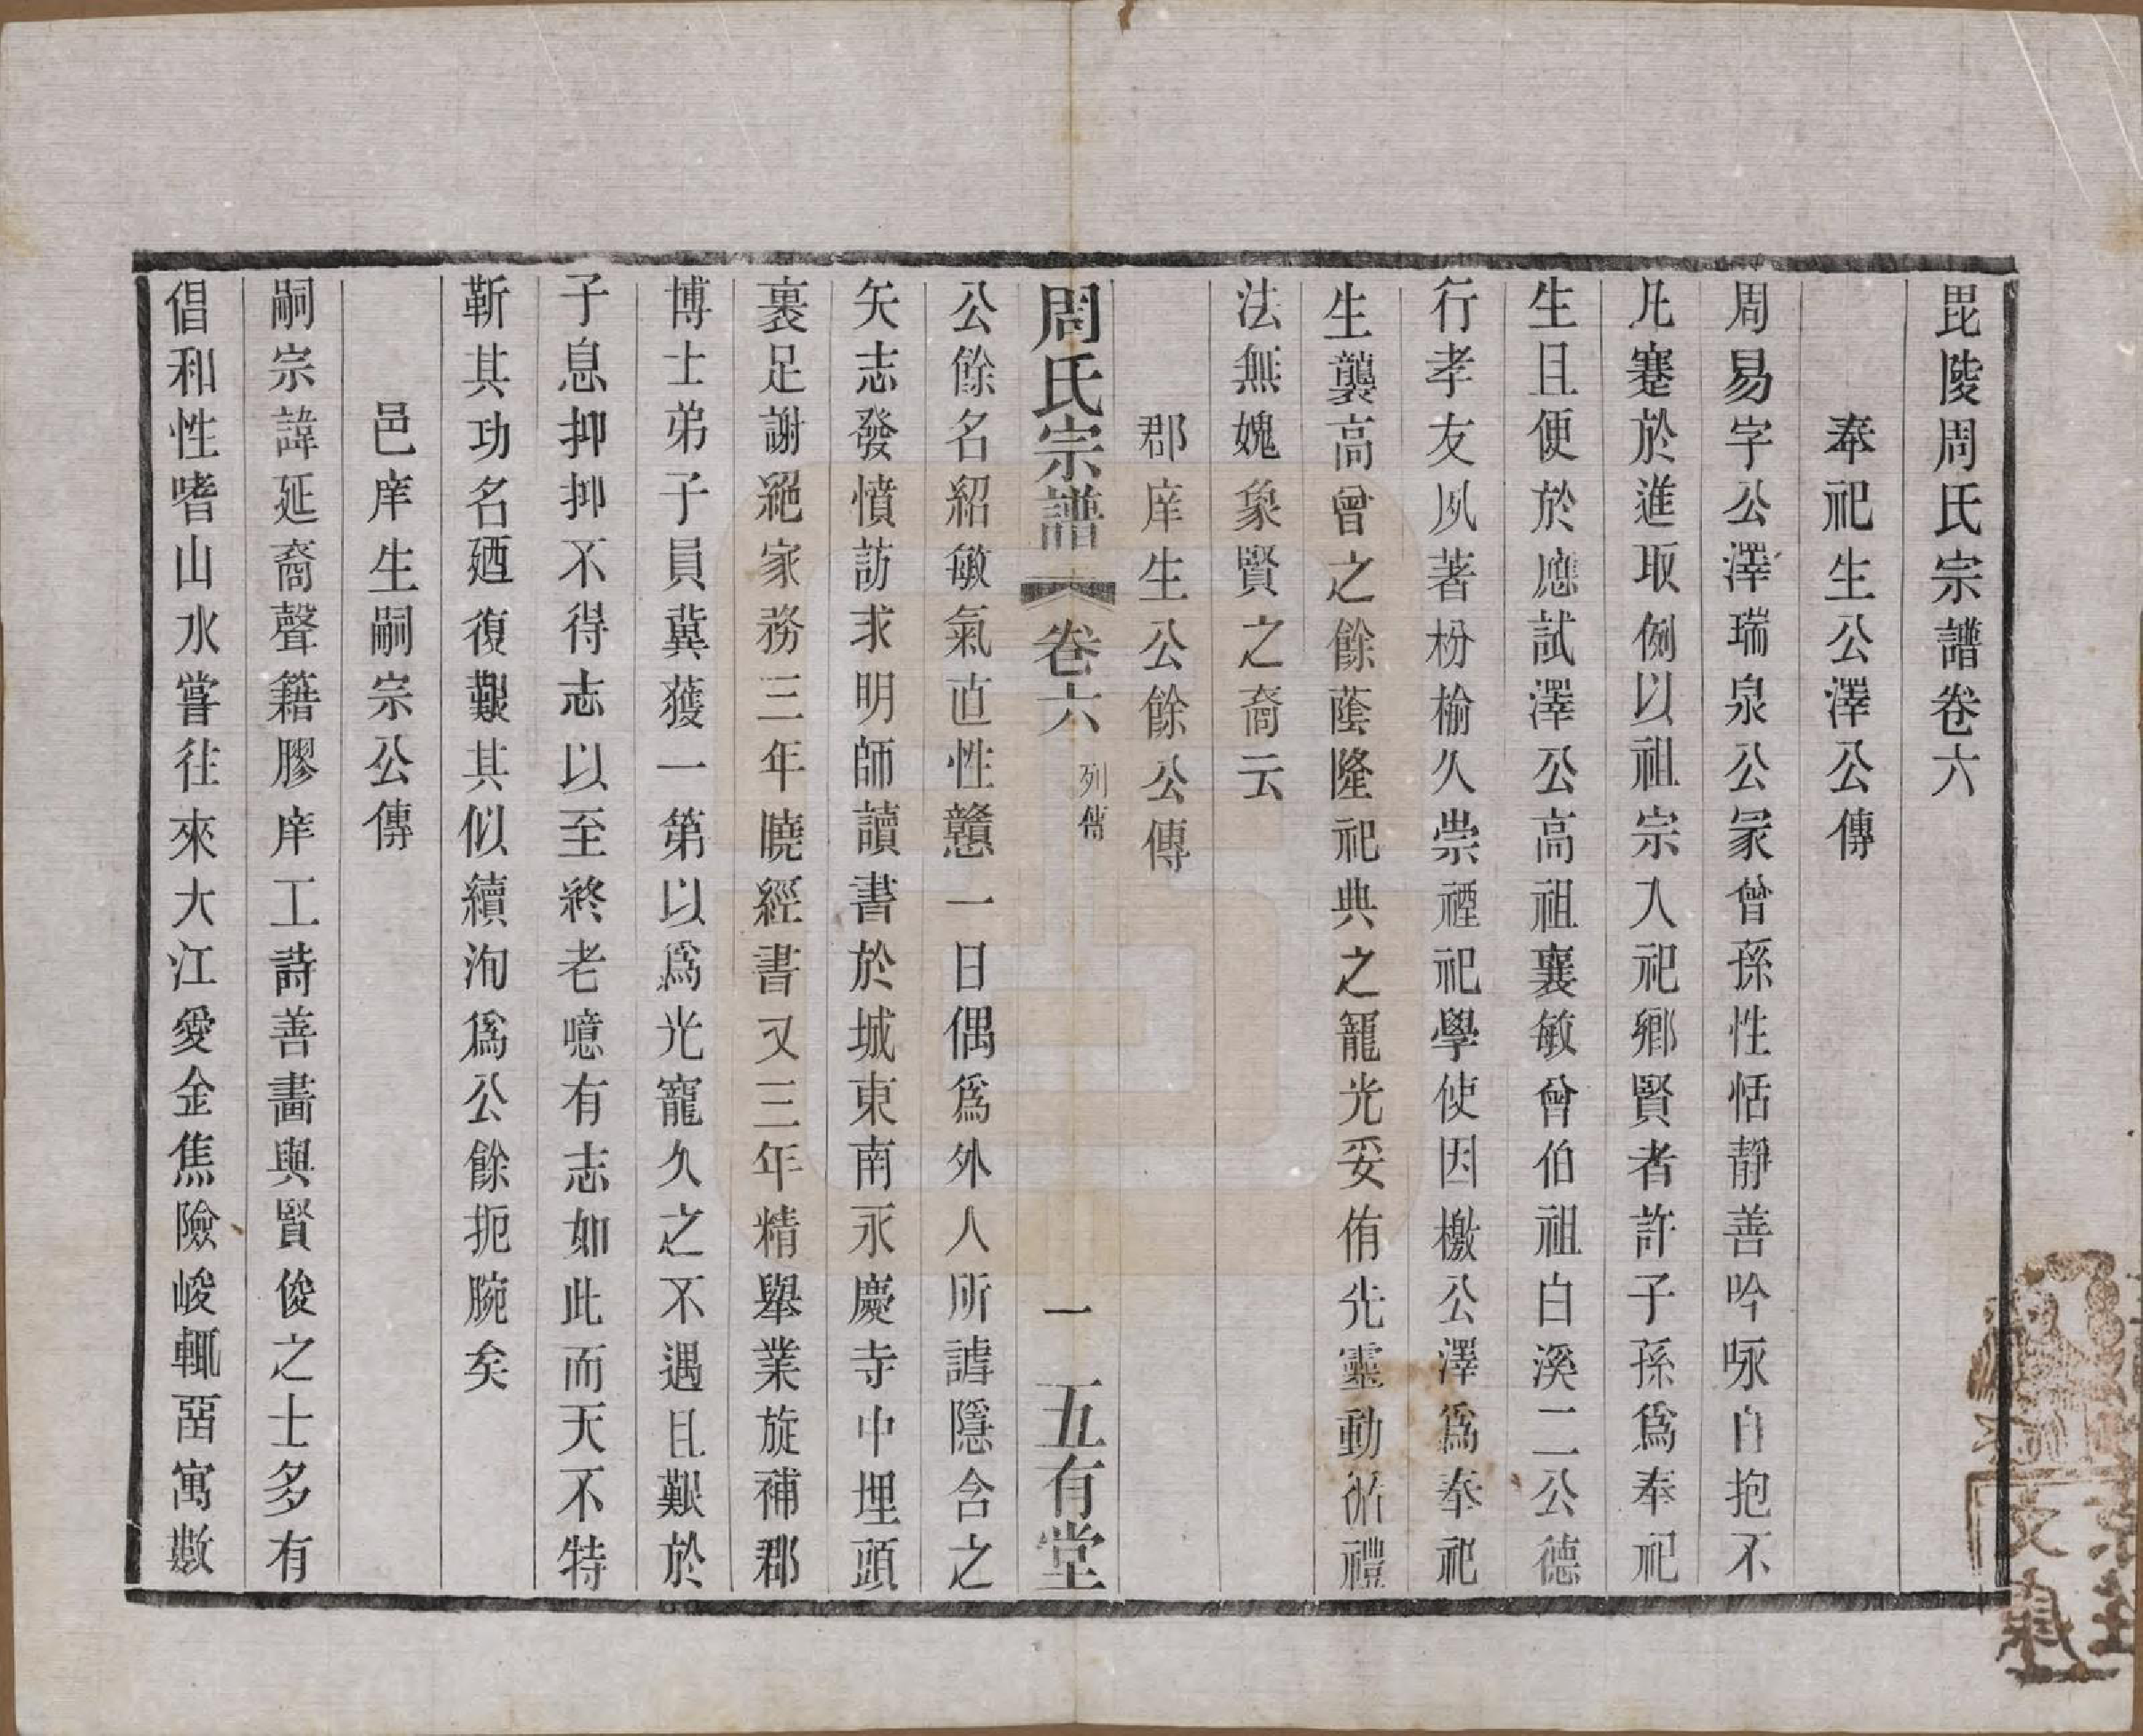 毘陵周氏宗譜卷六
奉祀生公澤公傳
周易字公澤瑞泉公冡曾孫性恬靜善吟咏自抱不
凡蹇於進取例以祖宗入祀鄉賢者許子孫爲奉祀
生且便於應試澤公高祖襄敏曾伯祖白溪二公德
行孝友夙著枌榆久崇禋祀學使因檄公澤爲奉祀
生襲高曾之餘蔭隆祀典之寵光妥侑先靈動循禮
法無媿象賢之裔云
郡庠生公餘公傳
周氏宗譜 卷六 列傳 一 五有堂
公餘名紹敏氣直性戇一日偶爲外人所謔隱含之
矢志發憤訪求明師讀書於城東南永慶寺中埋頭
裹足謝絕家務三年曉經書又三年精舉業旋補郡
博士弟子員冀獲一第以爲光寵久之不遇且艱於
子息抑抑不得志以至終老噫有志如此而天不特
靳其功名廼復艱其似續洵爲公餘扼腕矣
邑庠生嗣宗公傳
嗣宗諱延裔聲籍膠庠工詩善畵與賢俊之士多有
倡和性嗜山水嘗往來大江愛金焦險峻輒畱寓數